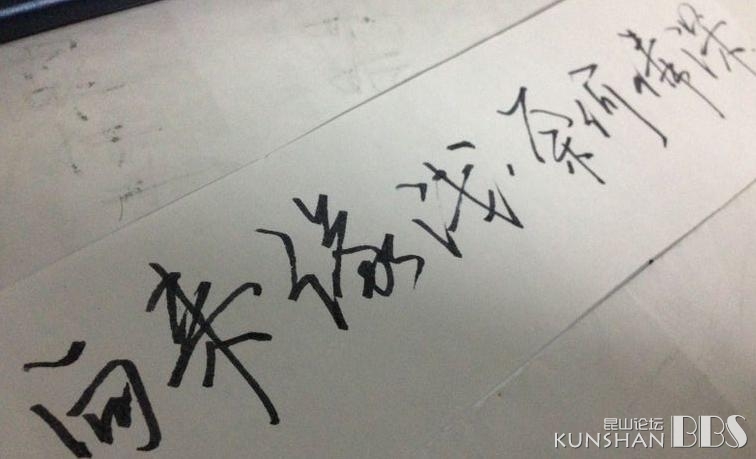 向来缘浅,奈何情深
昆山论坛
KUNSHAN BBS